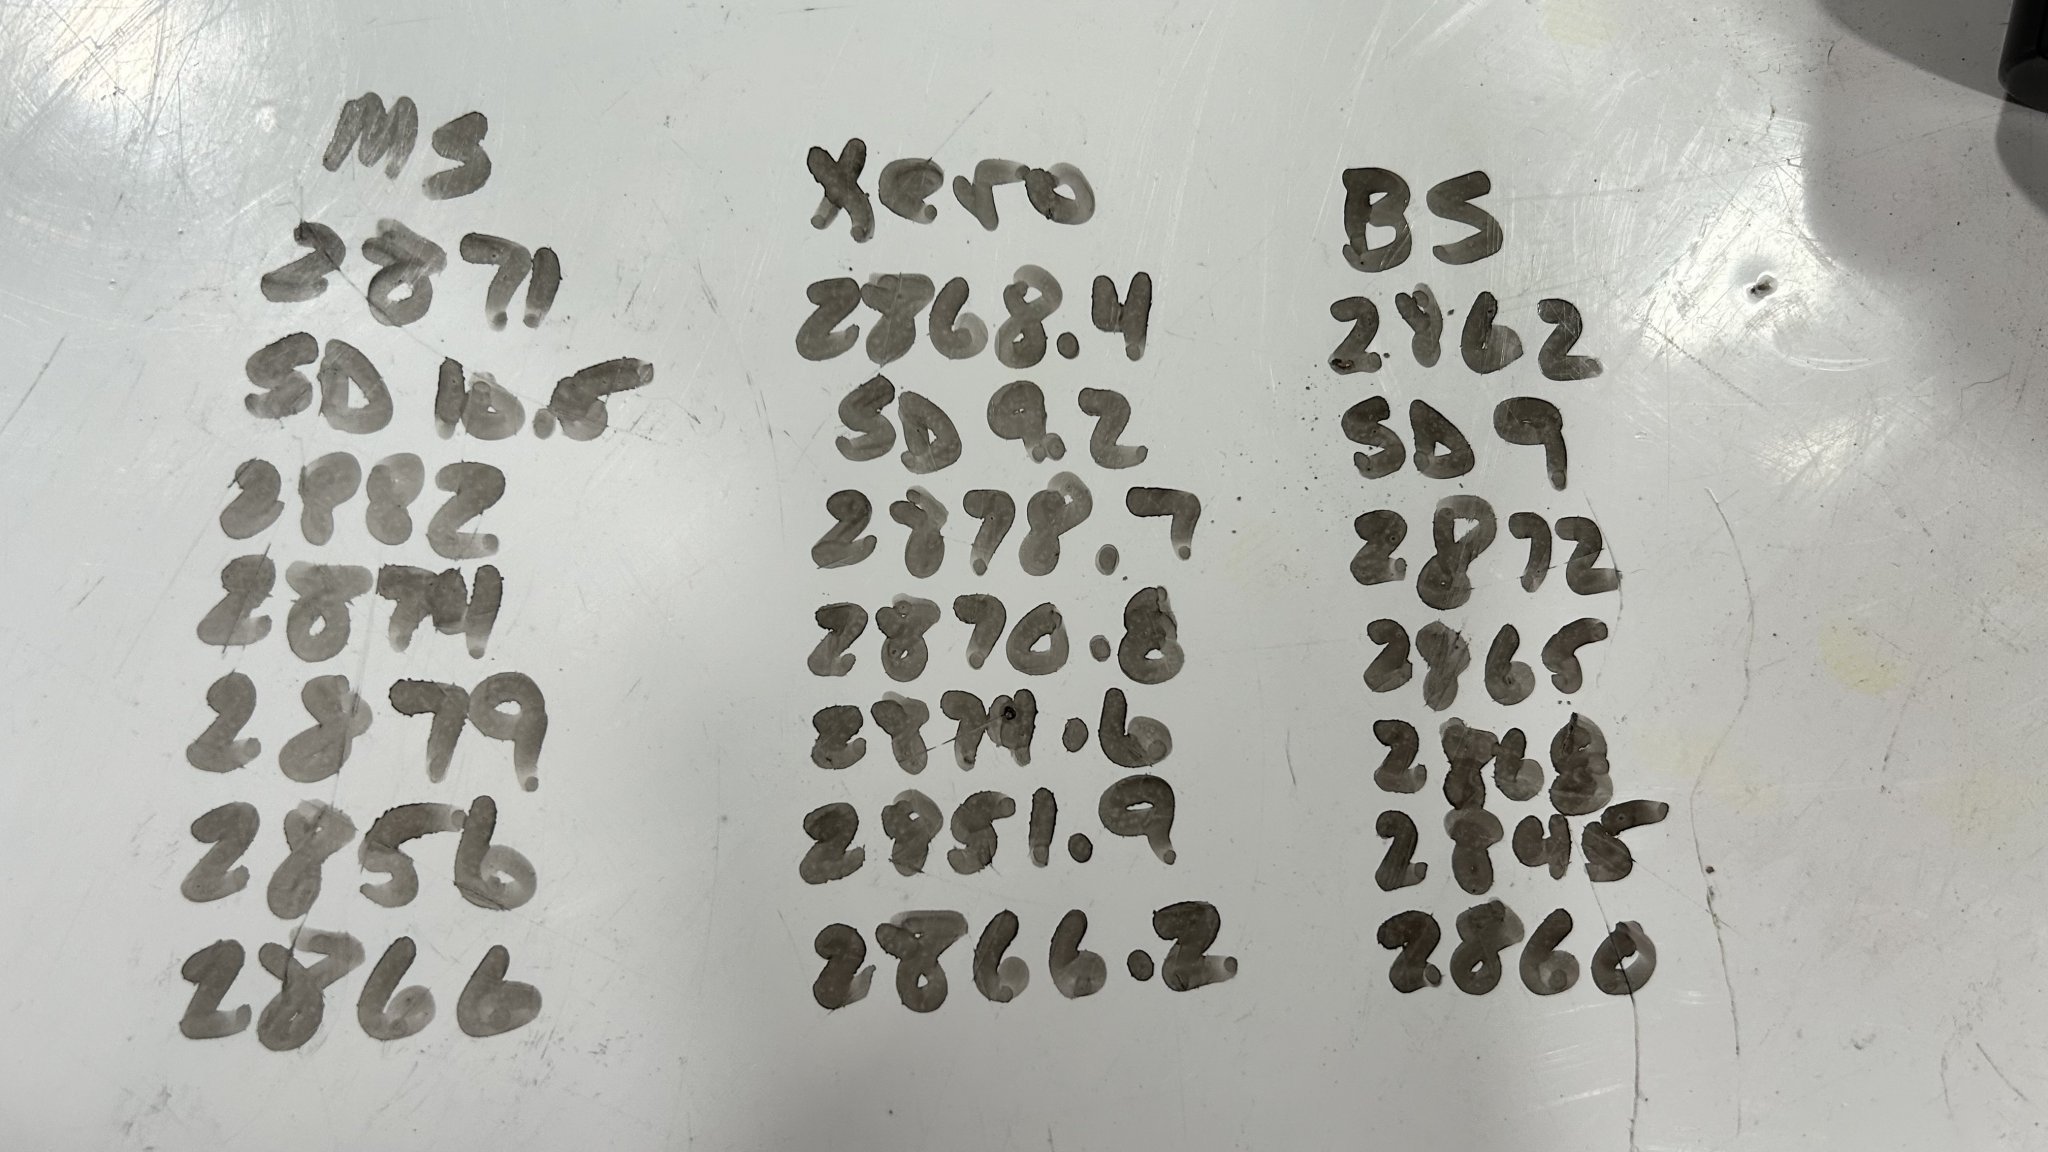 MS
2871
SD 10.5
2882
2874
2879
2856
2866
Xero
2868.4
SD 9.2
2878.7
2870.8
2874.6
2851.9
2866.2
BS
2862
SD 9
2872
2865
2868
2845
2860